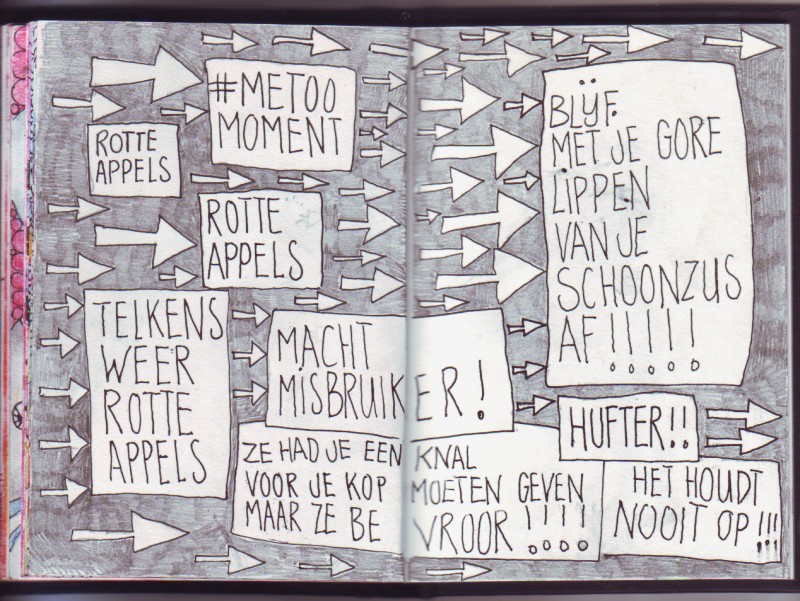 #METOO
MOMENT
ROTTE
APPELS
ROTTE
APPELS
TELKENS
WEER
ROTTE
APPELS
MACHT
MISBRUIKER!
ZE HAD JE EEN KNAL
VOOR JE KOP MOETEN GEVEN
MAAR ZE BEVROOR !!!!
BLŸF
MET JE GORE
LIPPEN
VAN JE
SCHOONZUS
AF !!!!!
HUFTER!!
HET HOUDT
NOOIT OP!!!